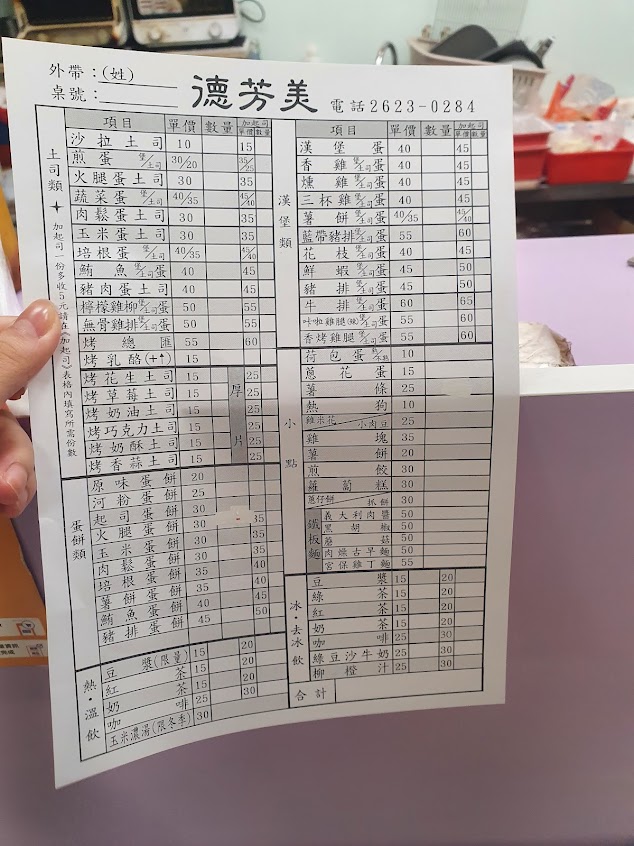 外帶：(姓)
桌號：
德芳美
電話2623-0284
土司類
✦加起司一份多收5元請在《加起司》表格內填寫所需份數
項目 單價 數量 加起司 單價 數量
沙拉土司 10 15
煎蛋堡/土司 30/20 35/25
火腿蛋土司 30 35
蔬菜蛋堡/土司 40/35 45/40
肉鬆蛋土司 30 35
玉米蛋土司 30 35
培根堡/土司蛋 40/35 45/40
鮪魚堡/土司蛋 40 45
豬肉蛋土司 40 45
檸檬雞柳堡/土司蛋 50 55
無骨雞排堡/土司蛋 50 55
烤總匯 55 60
烤乳酪(+↑) 15
烤花生土司 15 厚片 25
烤草莓土司 15 25
烤奶油土司 15 25
烤巧克力土司 15 25
烤奶酥土司 15 25
烤香蒜土司 15 25
蛋餅類
原味蛋餅 20
河粉蛋餅 25
起司蛋餅 30
火腿蛋餅 30 35
玉米蛋餅 30 35
肉鬆蛋餅 30 35
培根蛋餅 35 40
薯餅蛋餅 35 40
鮪魚蛋餅 40 45
豬排蛋餅 45 50
熱・溫飲
豆漿(限量) 15 20
紅茶 15 20
奶茶 15 20
咖啡 25 30
玉米濃湯(限冬季) 30
漢堡類
項目 單價 數量 加起司 單價 數量
漢堡蛋 40 45
香雞堡/土司蛋 40 45
燻雞堡/土司蛋 40 45
三杯雞堡/土司蛋 40 45
薯餅堡/土司蛋 40/35 45/40
藍帶豬排堡/土司蛋 55 60
花枝堡/土司蛋 40 45
鮮蝦堡/土司蛋 45 50
豬排堡/土司蛋 45 50
牛排堡/土司蛋 60 65
咔啦雞腿(辣)堡/土司蛋 55 60
香烤雞腿堡/土司蛋 55 60
小點
荷包蛋熟/不熟 10
蔥花蛋 15
薯條 25
熱狗 10
雞米花/小肉豆 25
雞塊 35
薯餅 20
煎餃 30
蘿蔔糕 30
蔥仔餅/抓餅 30
鐵板麵
義大利肉醬 50
黑胡椒 50
蘑菇 50
肉燥古早麵 50
宮保雞丁麵 55
冰・去冰飲
豆漿 15 20
綠茶 15 20
紅茶 15 20
奶茶 15 20
咖啡 25 30
綠豆沙牛奶 25 30
柳橙汁 25 30
合計